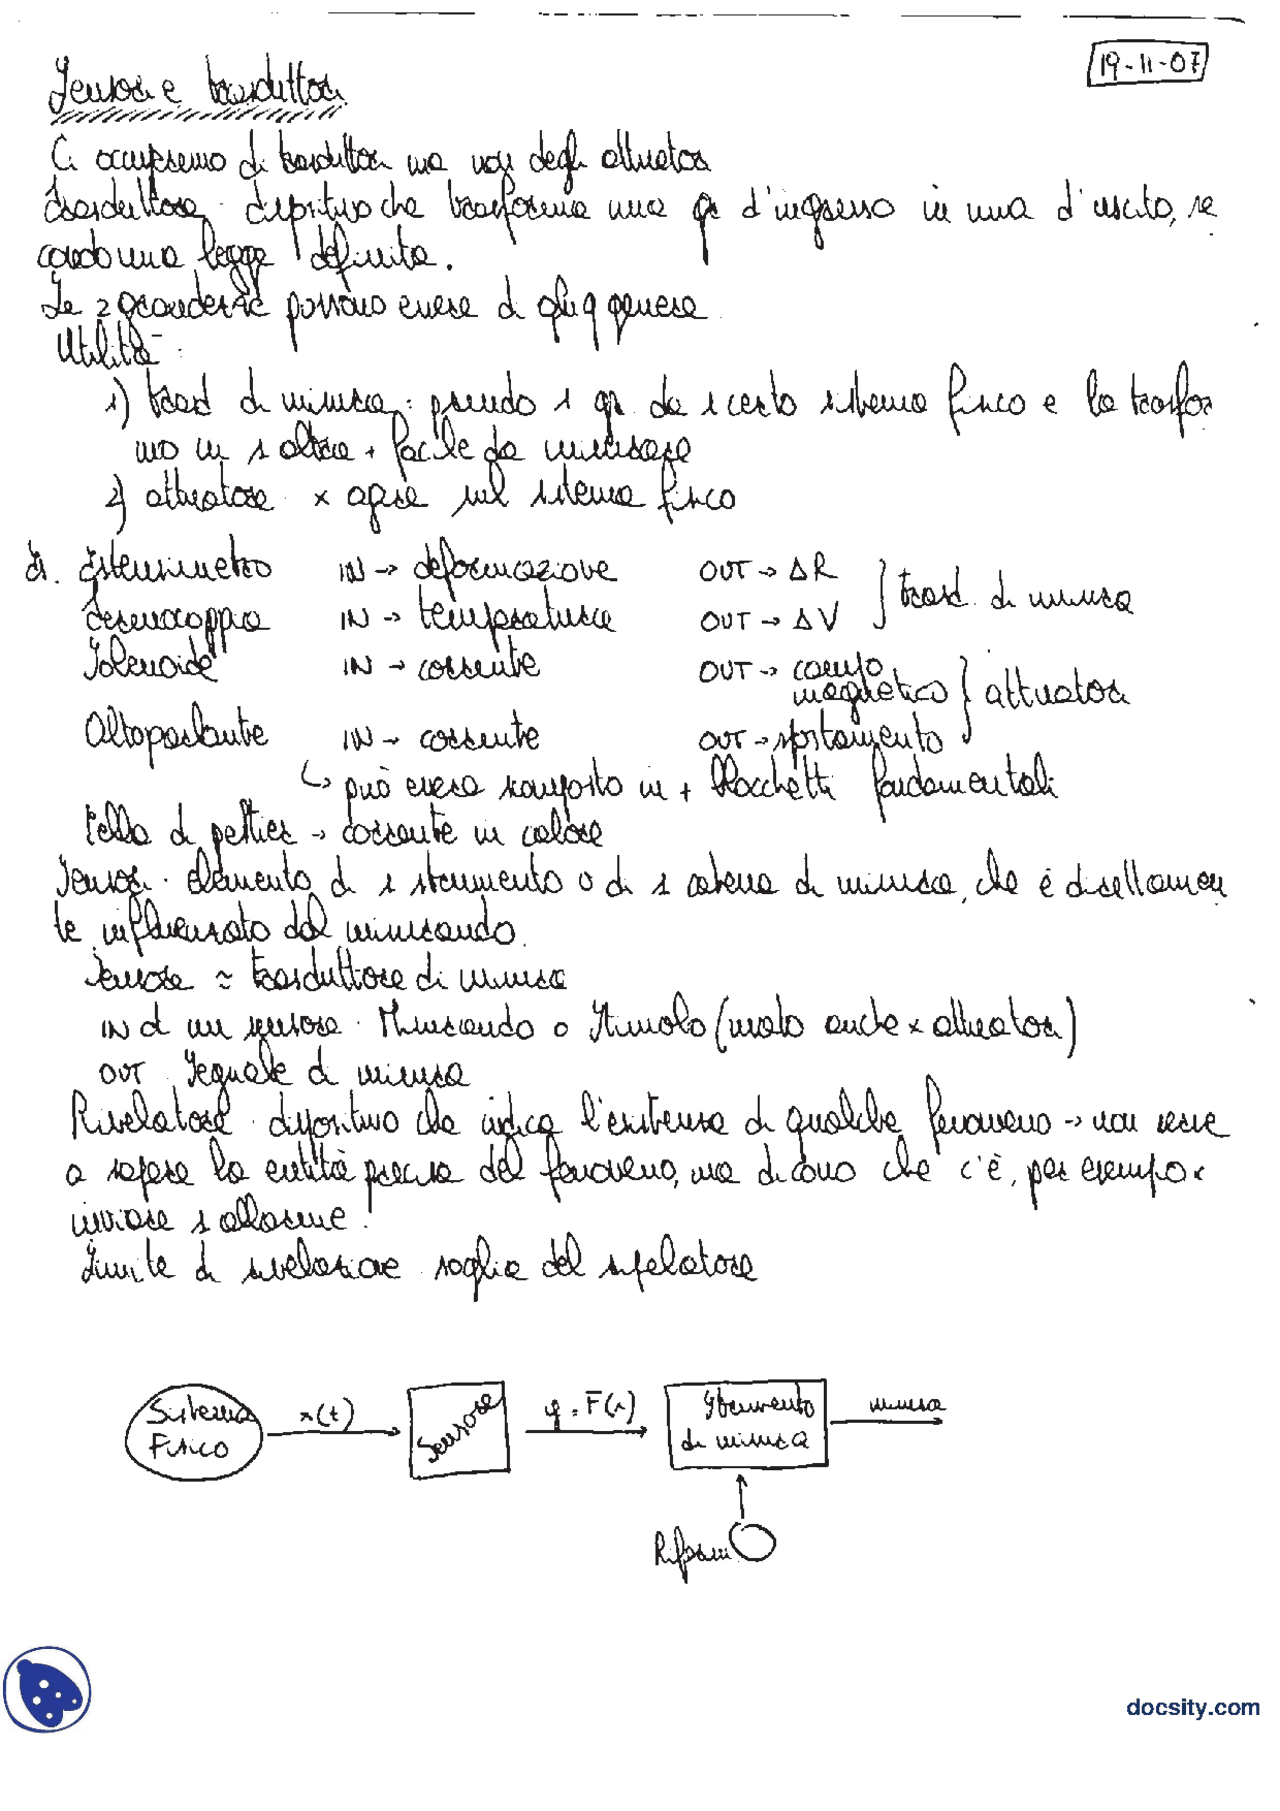 19-11-07
Sensori e trasduttori
Ci occupiamo di trasduttori ma non degli attuatori
Trasduttore: dispositivo che trasforma una gr. d'ingresso in una d'uscita, se
condo una legge definita.
Le 2 grandezze possono essere di qlq genere
Utilità:
1) trasd di misura: prendo 1 gr. da 1 certo sistema fisico e la trasfor
mo in 1 altra + facile da misurare
2) attuatore x agire sul sistema fisico
Es. Estensimetro IN → deformazione OUT → ΔR
trasd. di misura
Termocoppia IN → temperatura OUT → ΔV
Solenoide IN → corrente OUT → campo
magnetico } attuatori
Altoparlante IN → corrente OUT → spostamento
↳ può essere scomposto in + blocchetti fondamentali
Cella di peltier → corrente in calore
Sensori: elemento di 1 strumento o di 1 catena di misura, che è direttamen
te influenzato dal misurando.
Sensore ≃ trasduttore di misura
IN di un sensore: Misurando o Stimolo (usato anche x attuatori)
OUT: Segnale di misura
Rivelatore: dispositivo che indica l'esistenza di qualche fenomeno → non serve
a sapere la entità precisa del fenomeno, ma dicono che c'è, per esempio x
inviare 1 allarme!
Limite di rivelazione: soglia del rivelatore
Sistema
Fisico
x(t)
Sensore
y = F(x)
Strumento
di misura
misura
Riferim
docsity.com